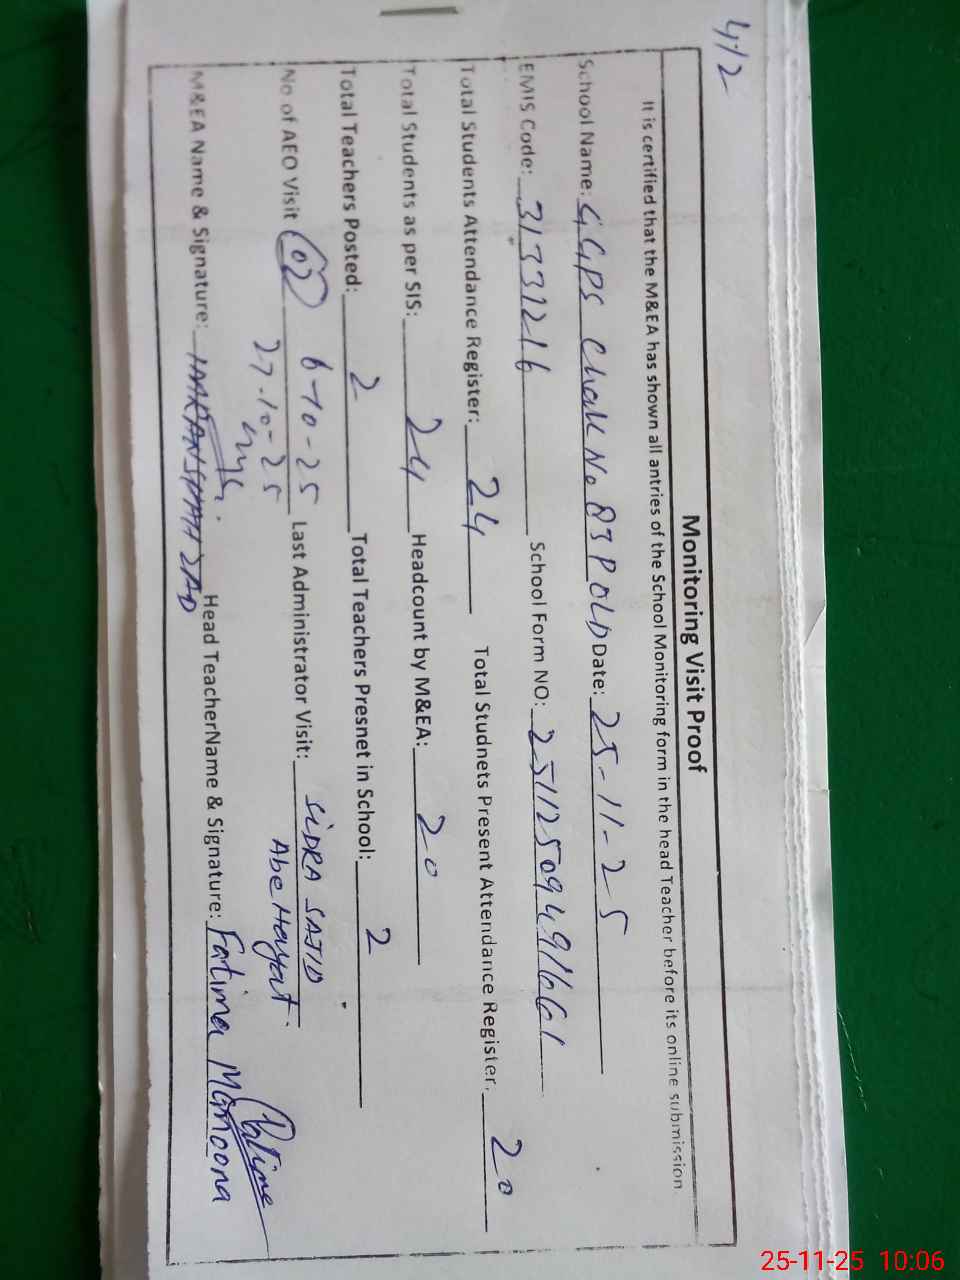 4/2
Monitoring Visit Proof
It is certified that the M&EA has shown all antries of the School Monitoring form in the head Teacher before its online submission
School Name: GGPS Chak No 83 P OLD Date: 25-11-25
EMIS Code: 31331216 School Form NO: 251125094991661
Total Students Attendance Register: 24 Total Studnets Present Attendance Register. 20
Total Students as per SIS: 24 Headcount by M&EA: 20
Total Teachers Posted: 2 Total Teachers Presnet in School: 2
No of AEO Visit 02 6-10-25 Last Administrator Visit: SIDRA SAJID
27-10-25 Abe Hayat.
M&EA Name & Signature: Head TeacherName & Signature: Fatima Mamoona
Fatima
25-11-25 10:06